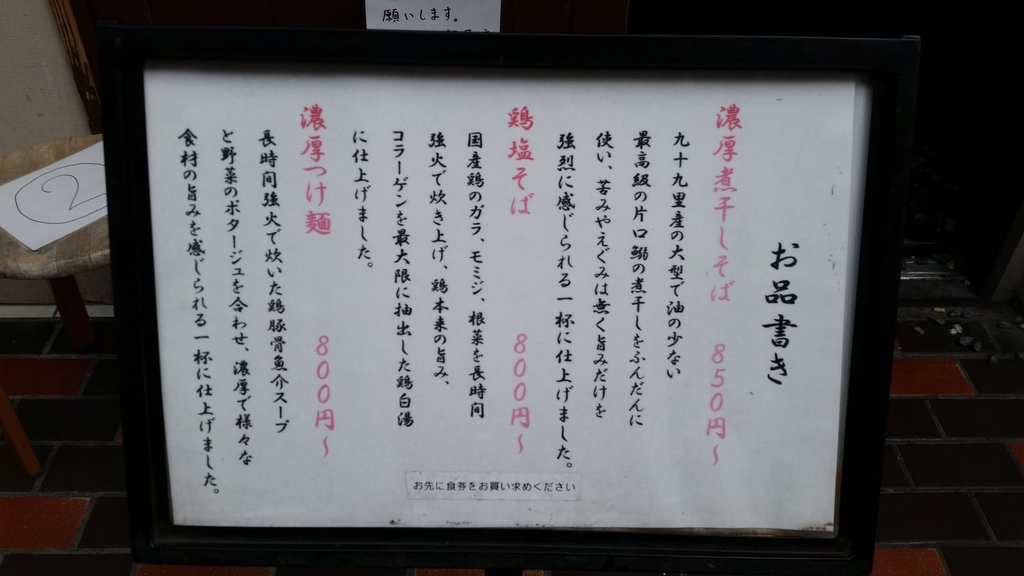 願いします。
お品書き
濃厚煮干しそば 850円~
九十九里産の大型で油の少ない
最高級の片口鰯の煮干しをふんだんに
使い、苦みやえぐみは無く旨みだけを
強烈に感じられる一杯に仕上げました。
鶏塩そば 800円~
国産鶏のガラ、モミジ、根菜を長時間
強火で炊き上げ、鶏本来の旨み、
コラーゲンを最大限に抽出した鶏白湯
に仕上げました。
濃厚つけ麺 800円~
長時間強火で炊いた鶏豚骨魚介スープ
と野菜のポタージュを合わせ、濃厚で様々な
食材の旨みを感じられる一杯に仕上げました。
お先に食券をお買い求めください
2